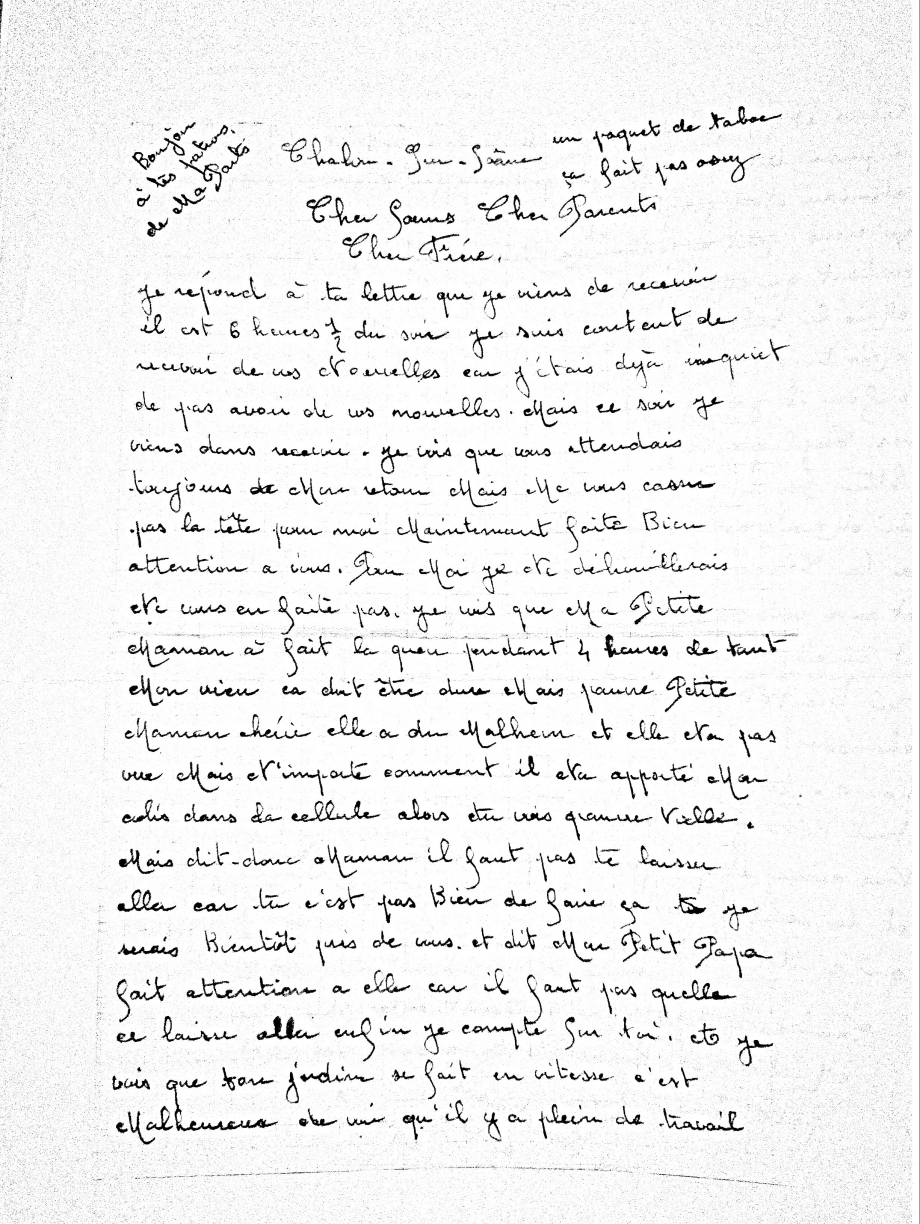 Bonjour
à tes patrons
de Ma Parts
un paquet de tabac
ça fait pas assez
Chalon-Sur-Saône
Cher Soeurs Cher Parents
Cher Frére.
je répond à ta lettre que je viens de recevoir
il est 6 heures 1/2 du soir je suis content de
recevoir de vos Nouvelles car j'étais déjà inquiet
de pas avoir de vos nouvelles. Mais ce soir je
viens dans recevoir. je vois que vous attendais
toujours de Mon retour Mais Ne vous casser
pas la tête pour moi Maintenant faite Bien
attention a vous. Pour Moi je Me débrouillerais
Ne vous en faite pas. je vois que Ma Petite
Maman à fait la queu pendant 4 heures de tant
Mon vieu ca doit être dure Mais pauvre Petite
Maman chérie elle a du Malheur et elle Ma pas
vue Mais N'importe comment il Ma apporté Mon
colis dans la cellule alors tu vois pauvre Vielle.
Mais dit-donc Maman il faut pas te laisser
aller car tu c'est pas Bien de faire ça je
serais Bientôt près de vous. et dit Mon Petit Papa
fait attention a elle car il faut pas quelle
ce laisse aller enfin je compte sur toi. et je
vois que ton jardin se fait en vitesse c'est
Malheureux de voir qu'il y a plein de travail